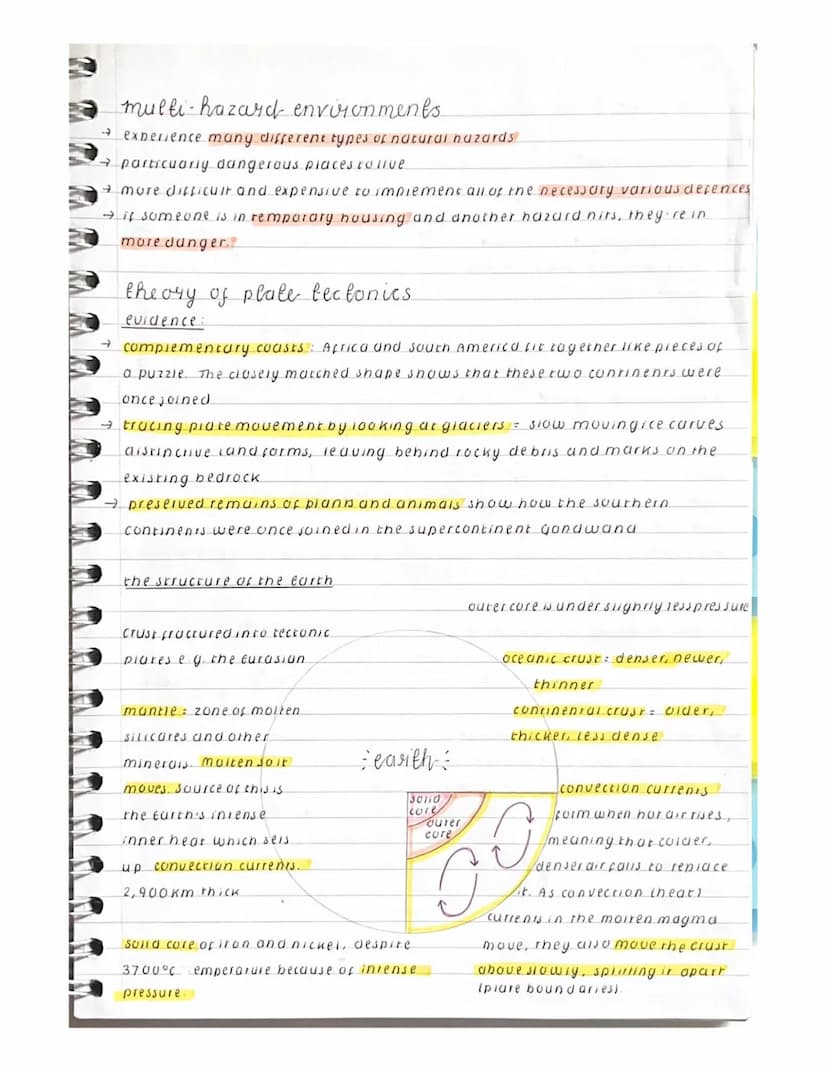 multi-hazard environments
→ experience many different types of natural hazards
→ particularly dangerous places to live
→ more difficult and expensive to implement all of the necessary various defences
→ if someone is in temporary housing and another hazard hits, they're in
more danger.
theory of plate tectonics
evidence:
→ complementary coasts: Africa and South America fit together like pieces of
a puzzle. The closely matched shape shows that these two continents were
once joined
→ tracing plate movement by looking at glaciers = slow moving ice carves
distinctive land forms, leaving behind rocky debris and marks on the
existing bedrock
→ preserved remains of plants and animals show how the southern
continents were once joined in the supercontinent Gondwana
the structure of the Earth
outer core is under slightly less pressure
Crust fractured into tectonic
plates e.g. the Eurasian
oceanic crust = denser, newer,
thinner
continental crust = older,
thicker, less dense
mantle = zone of molten
silicates and other
minerals. molten so it
moves. Source of this is
the Earth's intense
inner heat which sets
up convection currents.
2,900km thick
earth
solid
core
outer
core
convection currents
form when hot air rises,
meaning that colder,
denser air falls to replace
it. As convection (heat)
currents in the molten magma
move, they also move the crust
above slowly, splitting it apart
(plate boundaries).
solid core of iron and nickel, despite
3700°C temperature because of intense
pressure.